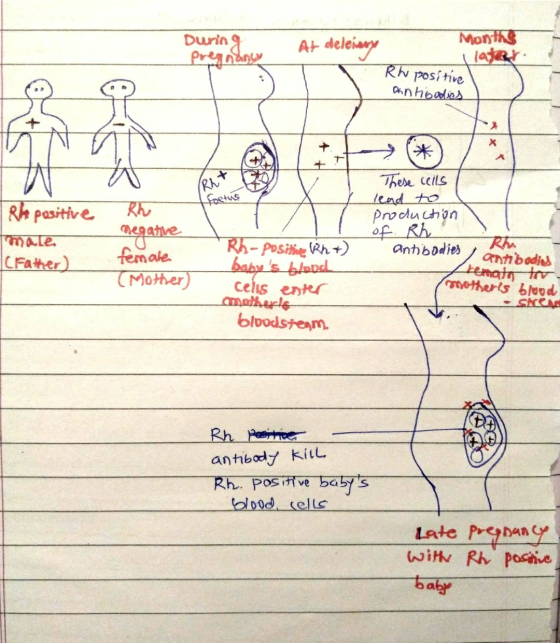 During
pregnancy
At deleivery
Months
later
Rh positive
antibodies
+
-
Rh+
Foetus
These cells
lead to
production
of Rh
antibodies
Rh positive
male
(Father)
Rh
negative
female
(Mother)
Rh-positive (Rh+)
baby's blood
cells enter
mother's
bloodsteam
Rh
antibodies
remain in
mother's blood
- stream
Rh positive
antibody kill
Rh. positive baby's
blood cells
Late pregnancy
with Rh positive
baby